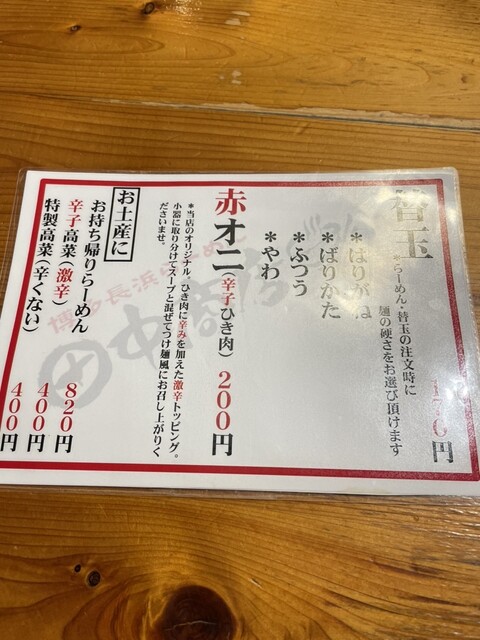 替玉 170円
*らーめん・替玉の注文時に
麺の硬さをお選び頂けます
*はりがね
*ばりかた
*ふつう
*やわ
赤オニ(辛子ひき肉) 200円
*当店のオリジナル。ひき肉に辛みを加えた激辛トッピング。
小器に取り分けてスープと混ぜてつけ麺風にお召し上がりく
ださいませ。
お土産に
お持ち帰りらーめん 820円
辛子高菜(激辛) 400円
特製高菜(辛くない) 400円
博多長浜らーめん
田中商店